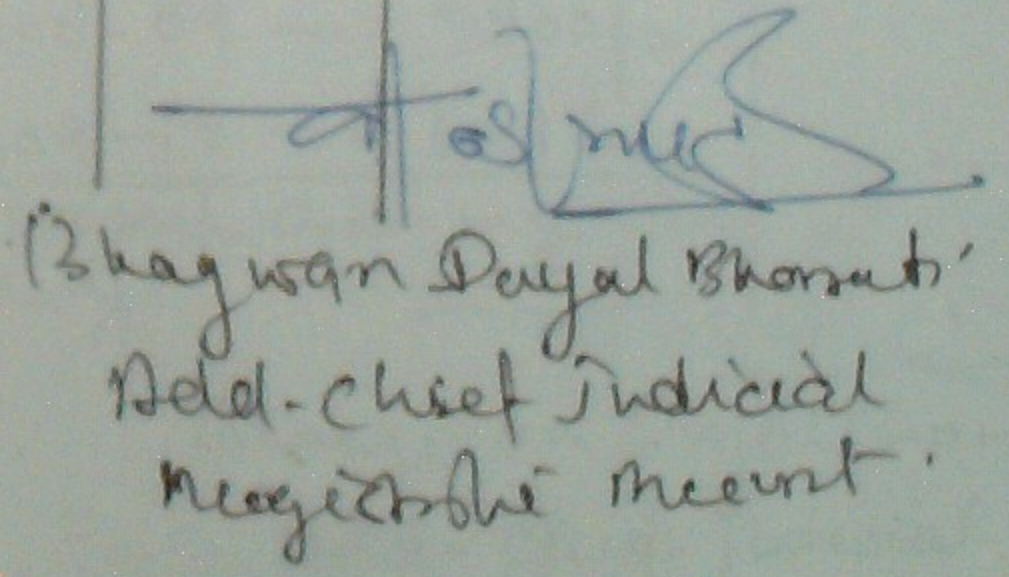 Bhagwan Dayal Bharati
Add-Chief Judicial
Magistrate Meerut.